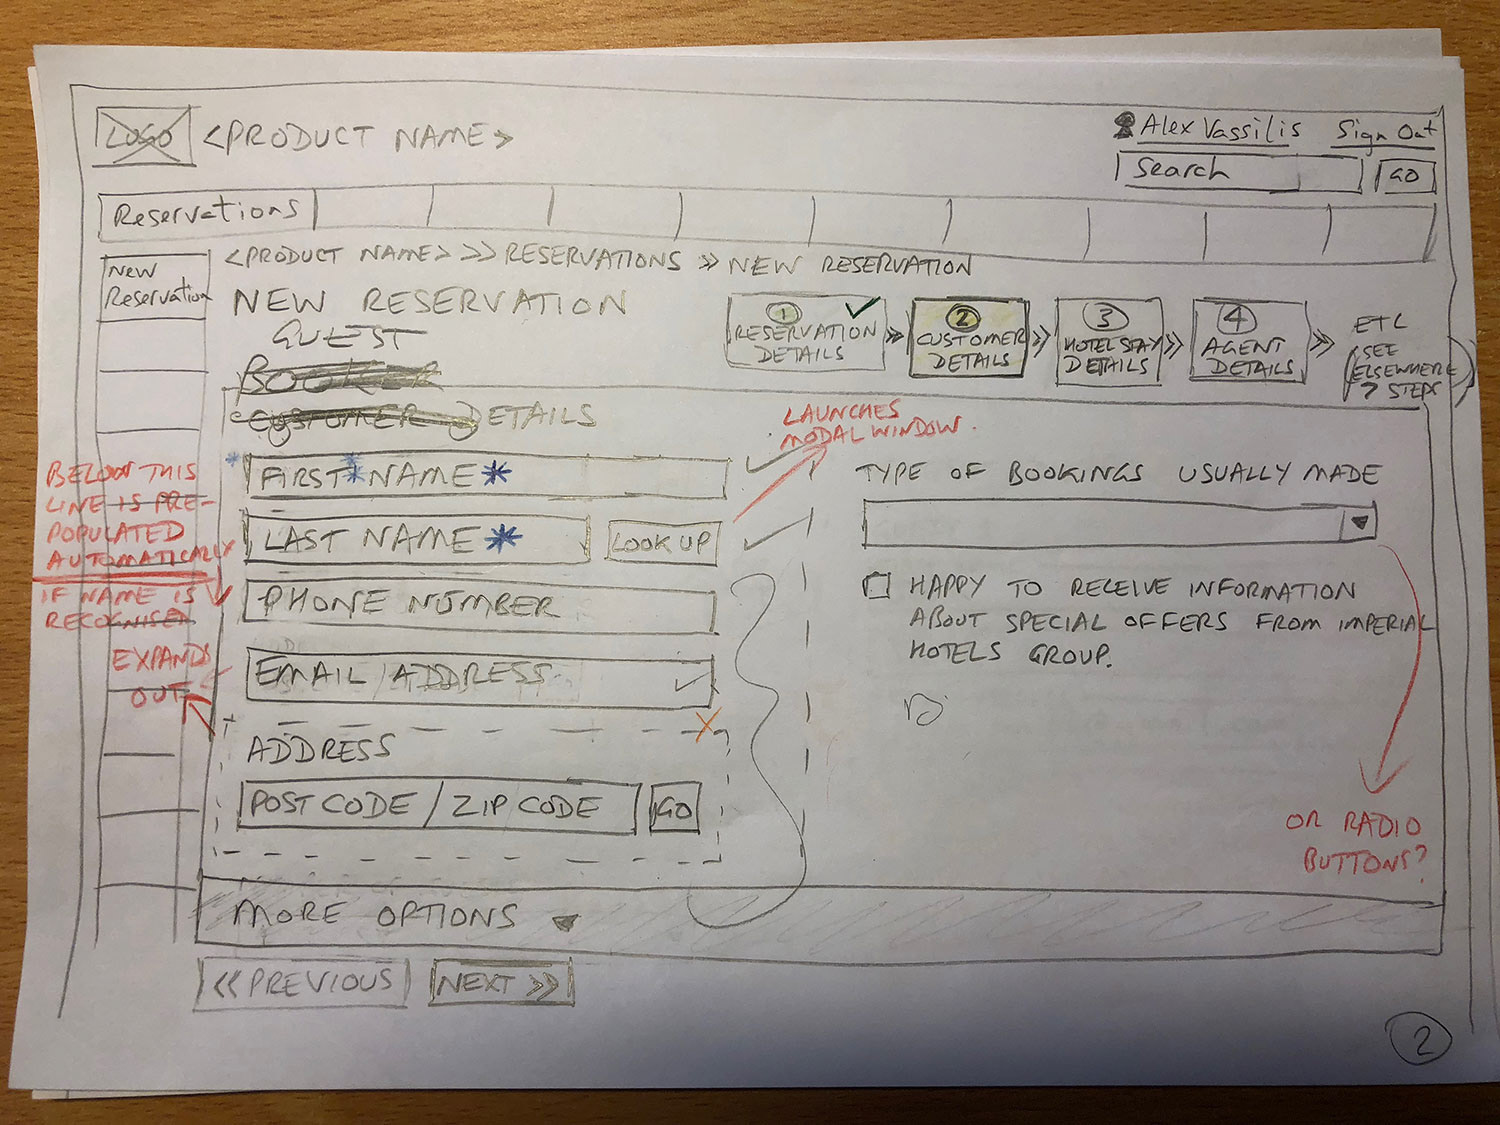 LOGO <PRODUCT NAME>
Alex Vassilis Sign Out
Search GO
Reservations
New
Reservation
<PRODUCT NAME> >> RESERVATIONS >> NEW RESERVATION
NEW RESERVATION
GUEST
BOOKER
CUSTOMER DETAILS
1
RESERVATION
DETAILS
>>
2
CUSTOMER
DETAILS
>>
3
HOTEL STAY
DETAILS
>>
4
AGENT
DETAILS
>>
ETC
(SEE
ELSEWHERE
7 STEPS)
LAUNCHES
MODAL WINDOW.
BELOW THIS
LINE IS PRE-
POPULATED
AUTOMATICALLY
IF NAME IS
RECOGNISED
EXPANDS
OUT
* FIRST * NAME *
LAST NAME * LOOK UP
PHONE NUMBER
EMAIL ADDRESS
X
ADDRESS
POST CODE / ZIP CODE GO
MORE OPTIONS
TYPE OF BOOKINGS USUALLY MADE
HAPPY TO RECEIVE INFORMATION
ABOUT SPECIAL OFFERS FROM IMPERIAL
HOTELS GROUP.
OR RADIO
BUTTONS?
<< PREVIOUS NEXT >>
2